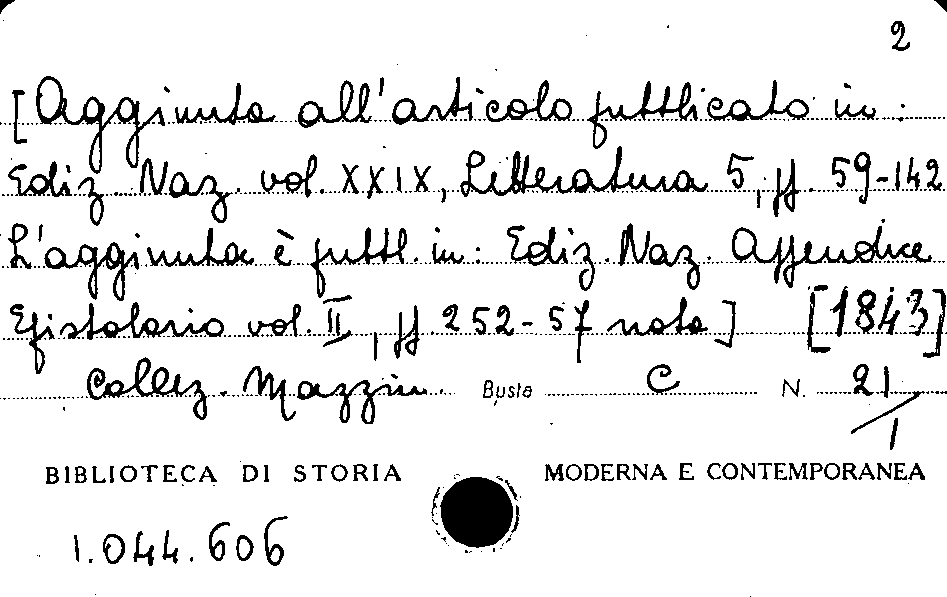 2
[Aggiunta all'articolo pubblicato in:
Ediz. Naz. vol. XXIX, Letteratura 5, pp. 59-142
L'aggiunta è pubbl. in: Ediz. Naz. Appendice
Epistolario vol. II, pp. 252-57 nota] [1843]
Collez. Mazzini. Busta C N. 21/1
BIBLIOTECA DI STORIA MODERNA E CONTEMPORANEA
1.044.606